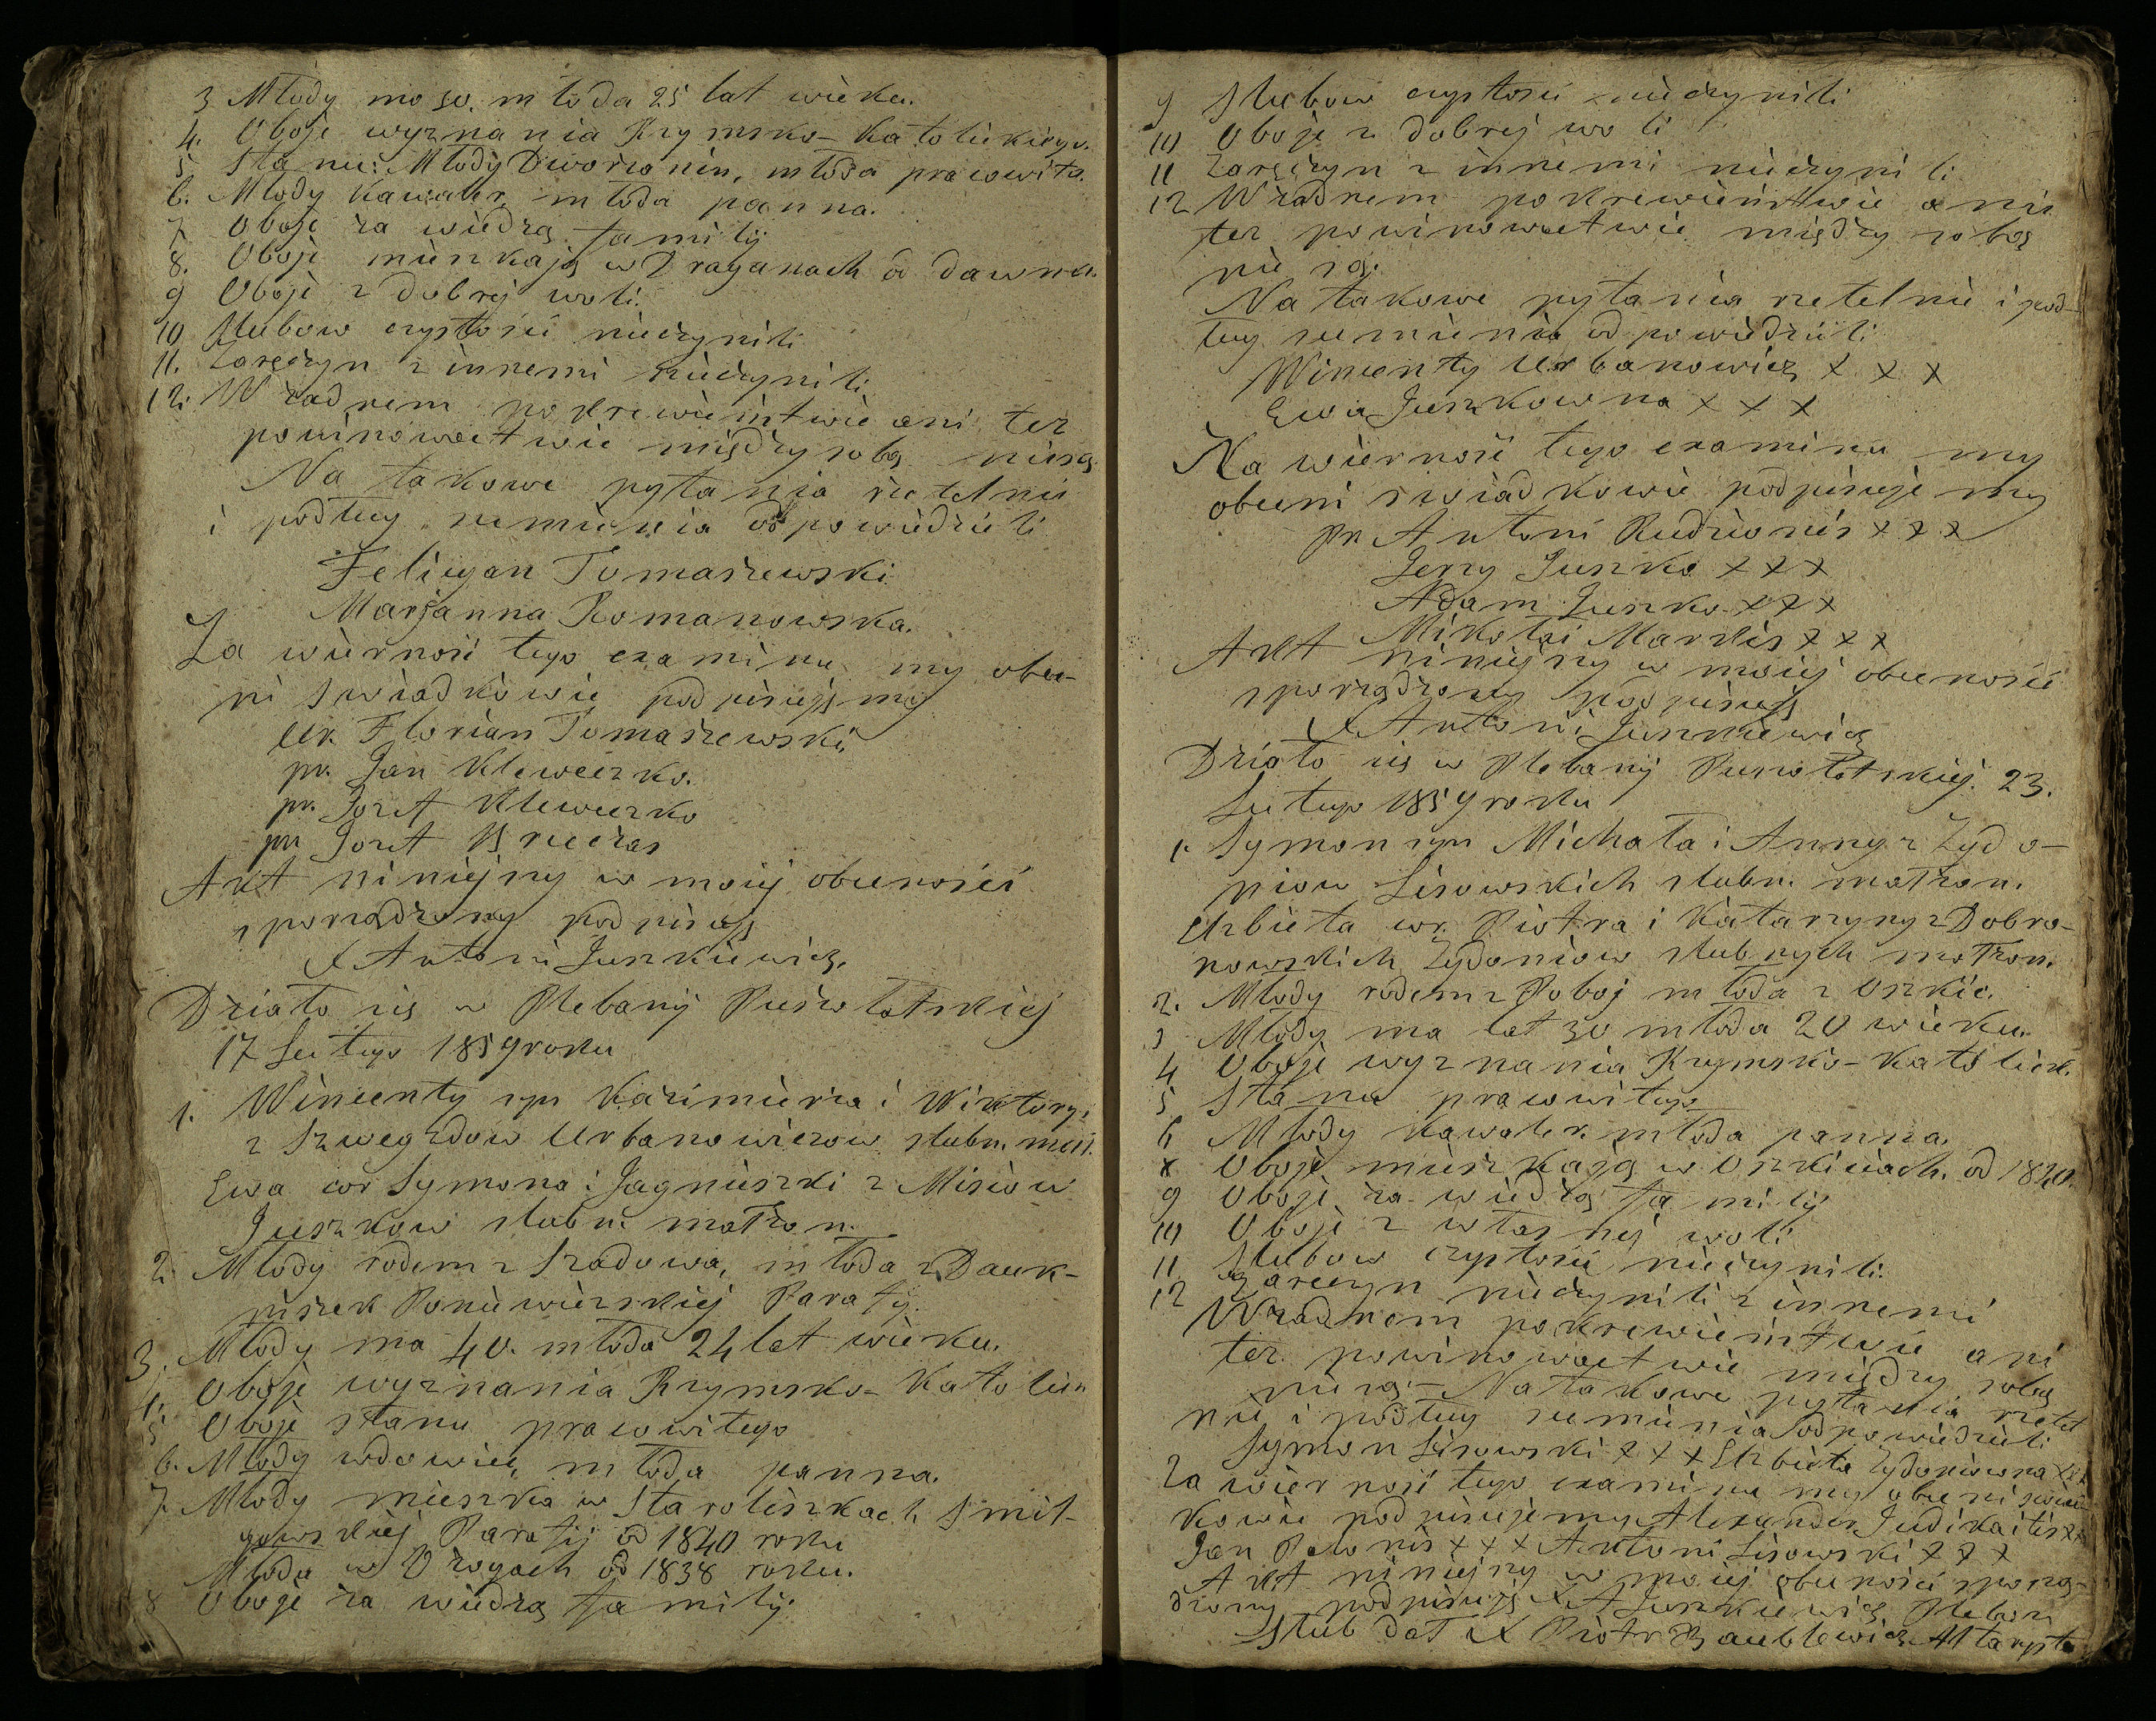 3 Młody ma 30. młoda 25 lat wieku.
4. Oboje wyznania Rzymsko-Katolickiego.
5 Stanu: Młody Dworzanin, młoda pracowita.
6. Młody Kawaler, młoda panna.
7 Oboje za wiedzą familij
8. Oboje mieszkają w Draganach od dawna.
9 Oboje z dobrej woli.
10 Slubow czystosci nieczynili
11. Zaręczyn z innemi nieczynili
12. W zadnem pokrewieństwie ani tez
powinowactwie między sobą niesą.
Na takowe pytania rzetelnie
i podług sumienia odpowiedzieli
Felicyan Tomaszewski
Marjanna Romanowska.
Za wierność tego examinu my obec-
ni swiadkowie podpisujęmy
Ur. Floryan Tomaszewski
pr. Jan Kleweczko.
pr. Jozef Kleweczko
pr Jozef
Akt niniejszy w moiej obecności
sporządzony podpisuję
X Antoni Juszkiewicz.
Działo się w Plebanij Puszołatskiej
17 Lutego 1859 roku
1. Wincenty syn Kazimierza i Wiktoryi
z Szwegzdow Urbanowiczow slubn. mał.
Ewa cor Symona i Jagnieszki z Misiow
Juszkow slubn. małżon.
2. Młody rodem z Szadowa, młoda z Dauk-
niszek Poniewiezskiej Parafij.
3. Młody ma 40. młoda 24 lat wieku.
4. Oboje wyznania Rzymsko-Katolick
5 Oboje stanu pracowitego
6. Młody wdowiec, młoda panna.
7. Młody mieszka w Staroliszkach Smil-
gowskiej Parafij od 1840 roku
Młoda w Drogach od 1838 roku.
8 Oboje za wiedzą familij.
9 Slubow czystosci nieczynili
10 Oboje z dobrej woli
11 Zaręczyn z innemi nieczynili
12 W zadnem pokrewieństwie ani
tez powinowactwie między sobą
nie są.
Na takowe pytania rzetelnie i pod-
ług sumienia odpowiedzieli
Wincenty Urbanowicz x x x
Ewa Juszkowna x x x
Na wierność tego examinu my
obecni swiadkowie podpisujemy
Pr. Antoni Rudzionis x x x
Jerzy Juszko x x x
Adam Juszko x x x
Mikołai Markis x x x
Akt niniejszy w moiej obecności
sporządzony podpisuję
X Antoni Juszkiewicz
Działo się w Plebanij Puszołotskiej. 23.
Lutego 1859 roku
1. Symon syn Michała i Anny z Zydo-
niow Lisowskich slubn. małżon.
Elzbieta cor. Piotra i Katarzyny z Dobro-
nowskich Zydoniow slubnych małżon.
2. Młody rodem z Poboj młoda z Oszkic.
3 Młody ma lat 30 młoda 20 wieku.
4 Oboje wyznania Rzymsko-Katolick.
5 Stanu pracowitego
6 Młody kawaler. młoda panna.
8 Oboje mieszkają w Oszkiciach. od 1840.
9 Oboje za wiedzą familij
10 Oboje z własnej woli
11 Slubow czystosci nieczynili.
12 Zaręczyn nieczynili z innemi
W zadnem pokrewieństwie ani
tez powinowactwie między sobą
nie są.- Na takowe pytania rzetel
nie i podług sumienia odpowiedzieli
Symon Lisowski x x x Elzbieta Zydoniowna x x x
Za wierność tego examinu my obecni swiad-
kowie podpisujemy Alexander Judikaitis x x
Jan x x x Antoni Lisowski x x x
Akt niniejszy w moiej obecności sporzą-
dzony podpisuję X A Juszkiewicz Pleban
Slub dał X Piotr Altarysta